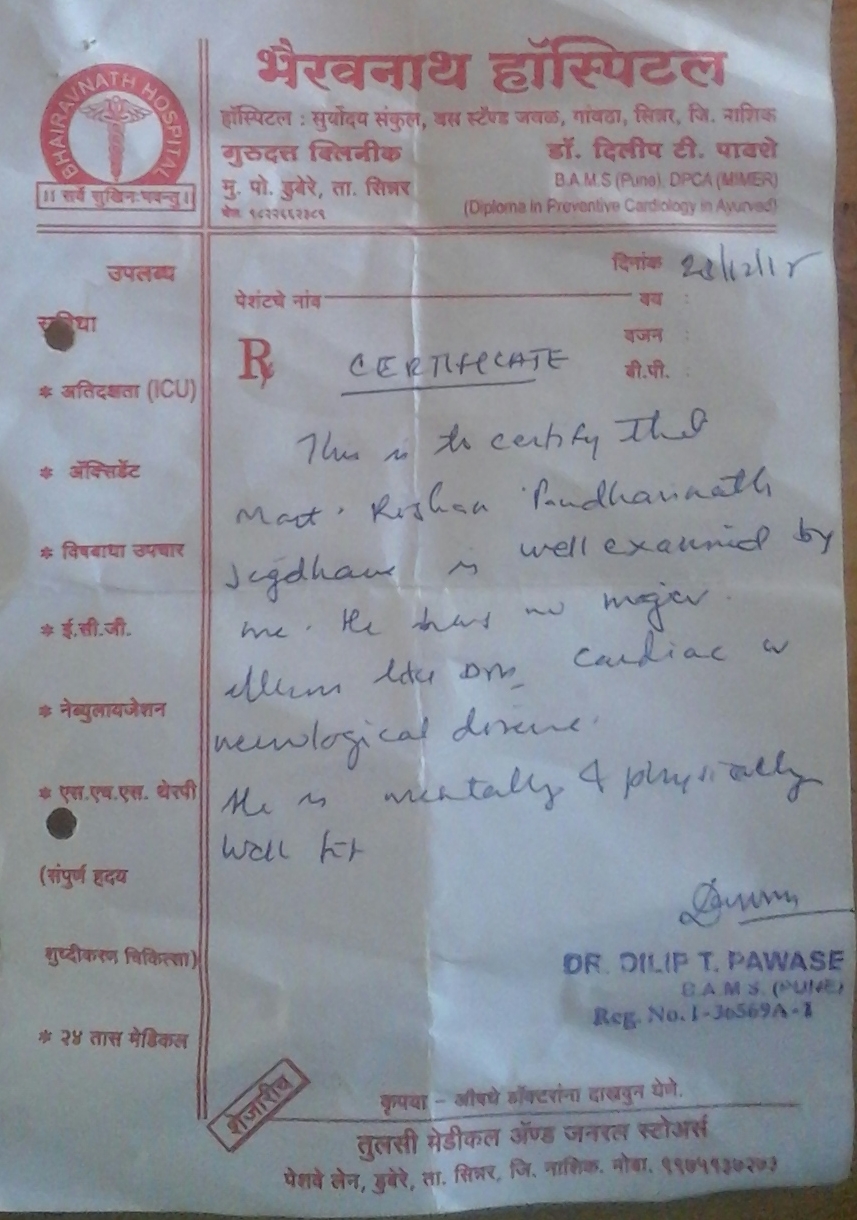 भैरवनाथ हॉस्पिटल
BHAIRAVNATH HOSPITAL
।। सर्वे सुखिनःभवन्तु ।।
हॉस्पिटल : सुर्योदय संकुल, बस स्टॅण्ड जवळ, गांवठा, सिन्नर, जि. नाशिक
गुरुदत्त क्लिनीक
मु. पो. डुबेरे, ता. सिन्नर
डॉ. दिलीप टी. पावशे
B.A.M.S (Pune), DPCA (MIMER)
(Diploma in Preventive Cardiology in Ayurved)
दिनांक
पेशंटचे नांव
वय :
वजन :
बी.पी. :
उपलब्ध
* अतिदक्षता (ICU)
* ॲक्सिडेंट
* विषबाधा उपचार
* ई.सी.जी.
* नेब्युलायजेशन
* एस.एच.एस. थेरपी
(संपुर्ण हृदय
शुध्दीकरण चिकित्सा)
* २४ तास मेडिकल
Rx
CERTIFICATE
This is to certify that
Mast. Roshan Pandharinath
Jagdhane is well examined by
me. He has no major
illness like DM, cardiac or
neurological disease.
He is mentally & physically
well fit
DR. DILIP T. PAWASE
B.A.M.S. (PUNE)
Reg. No. I-36569A-1
कृपया - औषधे डॉक्टरांना दाखवुन घेणे.
शेजारीच
तुलसी मेडीकल ॲण्ड जनरल स्टोअर्स
पेशवे लेन, डुबेरे, ता. सिन्नर, जि. नाशिक. मोबा.